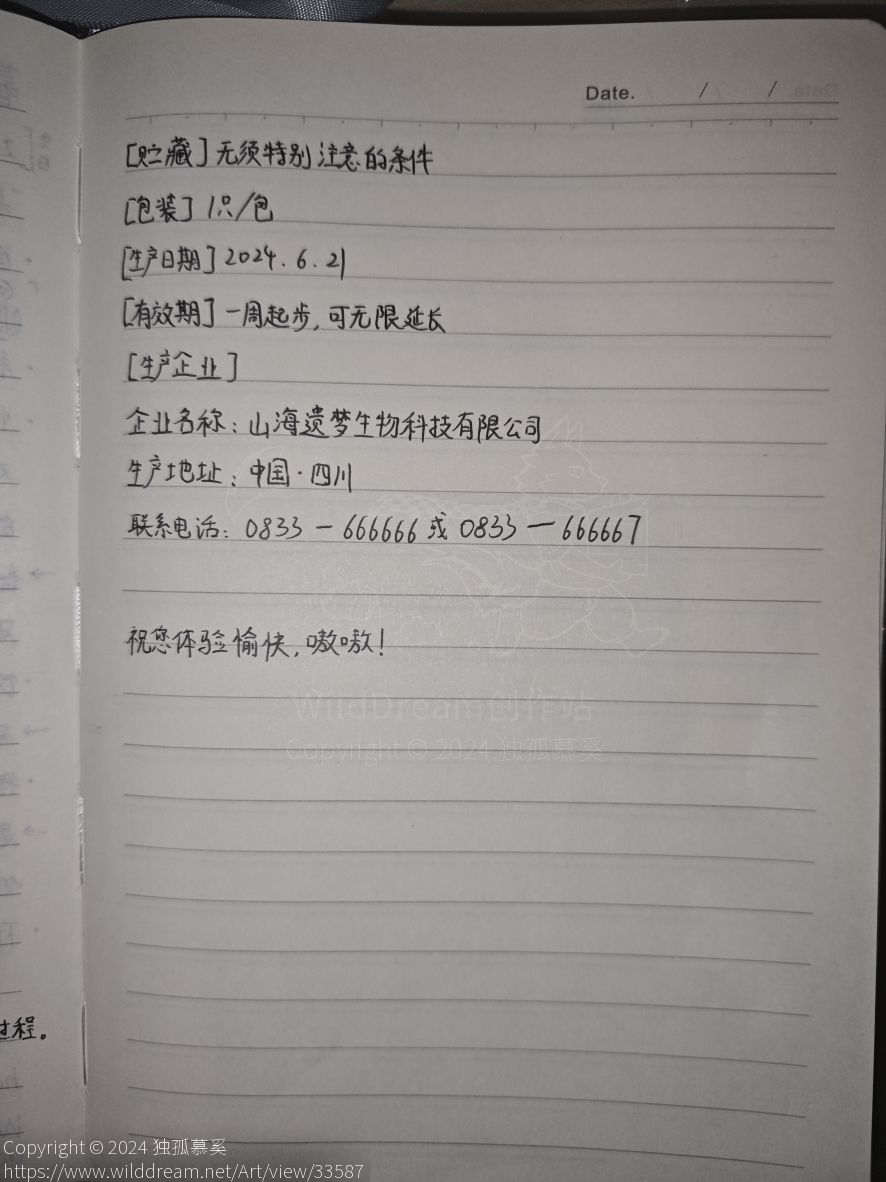 Date. / /
[贮藏]无须特别注意的条件
[包装] 1只/包
[生产日期] 2024.6.21
[有效期] 一周起步,可无限延长
[生产企业]
企业名称:山海遗梦生物科技有限公司
生产地址:中国·四川
联系电话:0833-666666或0833-666667
祝您体验愉快,嗷嗷!
WildDream创作站
Copyright © 2024 独孤慕奚
过程。
Copyright © 2024 独孤慕奚
https://www.wilddream.net/Art/view/33587